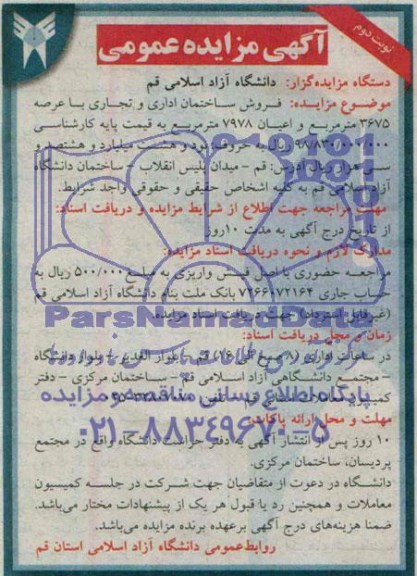 نوبت دوم
آگهی مزایده عمومی
دستگاه مزایده‌گزار: دانشگاه آزاد اسلامی قم
موضوع مزایده: فروش ساختمان اداری و تجاری با عرصه
۳۶۷۵ مترمربع و اعیان ۷۹۷۸ مترمربع به قیمت پایه کارشناسی
ریال به حروف نود و هشت میلیارد و هشتصد و
سی ریال آدرس: قم - میدان پلیس انقلاب - ساختمان دانشگاه
آزاد اسلامی قم به کلیه اشخاص حقیقی و حقوقی واجد شرایط.
مهلت مراجعه جهت اطلاع از شرایط مزایده و دریافت اسناد:
از تاریخ درج آگهی به مدت ۱۰ روز
مدارک لازم و نحوه دریافت اسناد مزایده:
مراجعه حضوری با اصل فیش واریزی به مبلغ ۵۰۰/۰۰۰ ریال به
حساب جاری ۷۲۶۶۰۷۲۱۶۴ بانک ملت بنام دانشگاه آزاد اسلامی قم
(غیرقابل استرداد) جهت دریافت اسناد مزایده
ParsNamadData
زمان و محل دریافت اسناد:
در ساعات اداری (۸ صبح الی ۱۶) قم - بلوار الغدیر - بلوار دانشگاه
- مجتمع دانشگاهی آزاد اسلامی قم - ساختمان مرکزی - دفتر
پایگاه اطلاع رسانی مناقصه و مزایده
مهلت و محل ارائه پاکات:
۰۲۱-۸۸۳۴۹۶۷۰-۵
۱۰ روز پس از انتشار آگهی به دفتر حراست دانشگاه واقع در مجتمع
پردیسان، ساختمان مرکزی.
دانشگاه در دعوت از متقاضیان جهت شرکت در جلسه کمیسیون
معاملات و همچنین رد یا قبول هر یک از پیشنهادات مختار می‌باشد.
ضمنا هزینه‌های درج آگهی برعهده برنده مزایده می‌باشد.
روابط عمومی دانشگاه آزاد اسلامی استان قم